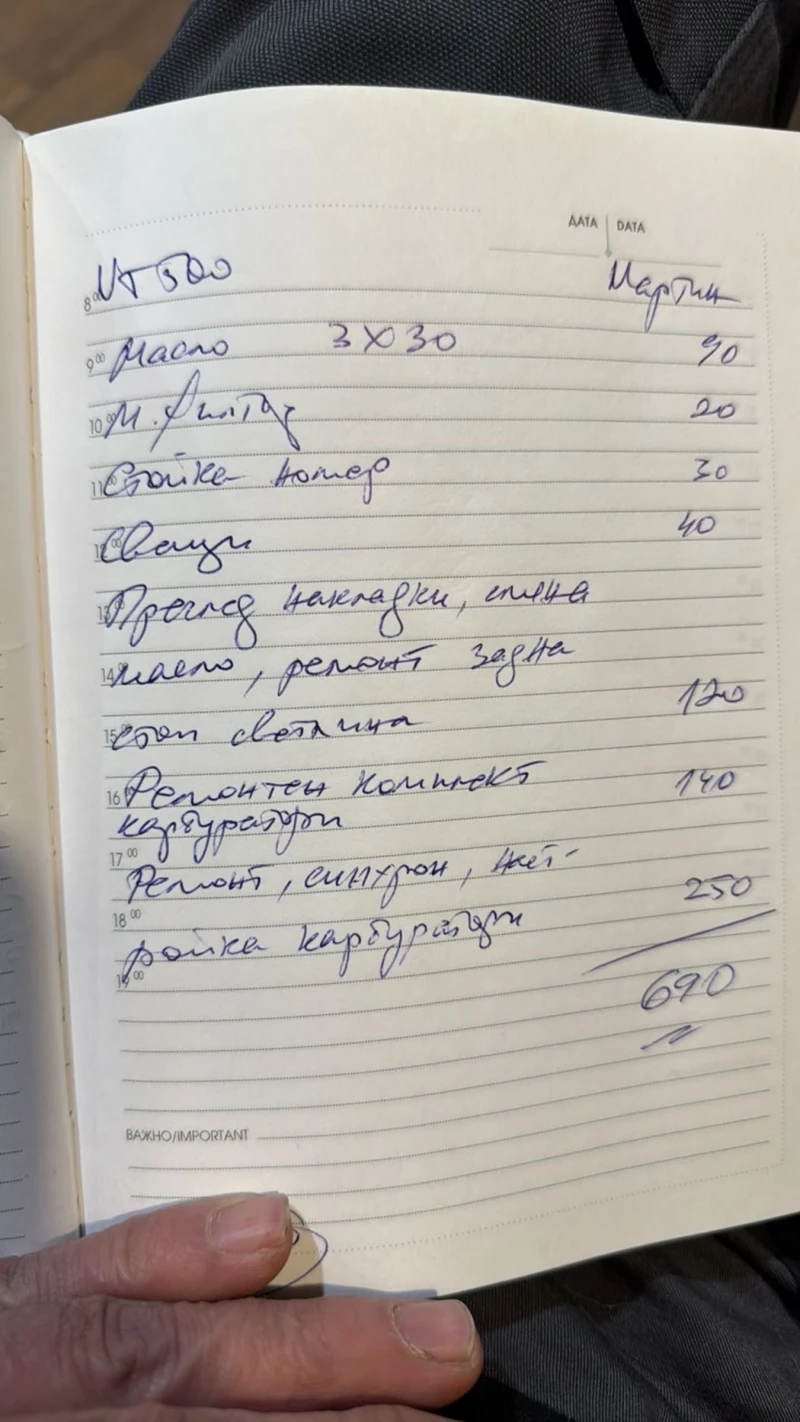 ДАТА | DATA
8 00 VT 500 Мартин
9 00 Масло 3 X 30 90
10 00 М. Филтър 20
11 Стойка номер 30
12 00 Свещи 40
13 Преглед накладки, смяна
14 масло, ремонт задна
15 стоп светлина 120
16 Ремонтен комплект 140
карбуратори
17 00
Ремонт, синхрон, наст-
18 00 250
ройка карбуратори
19 00
690
ВАЖНО/IMPORTANT